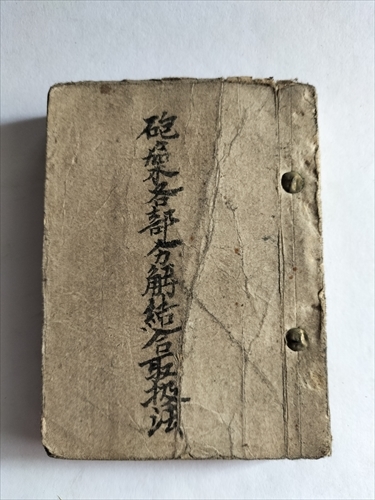 砲架各部分解結合取扱法